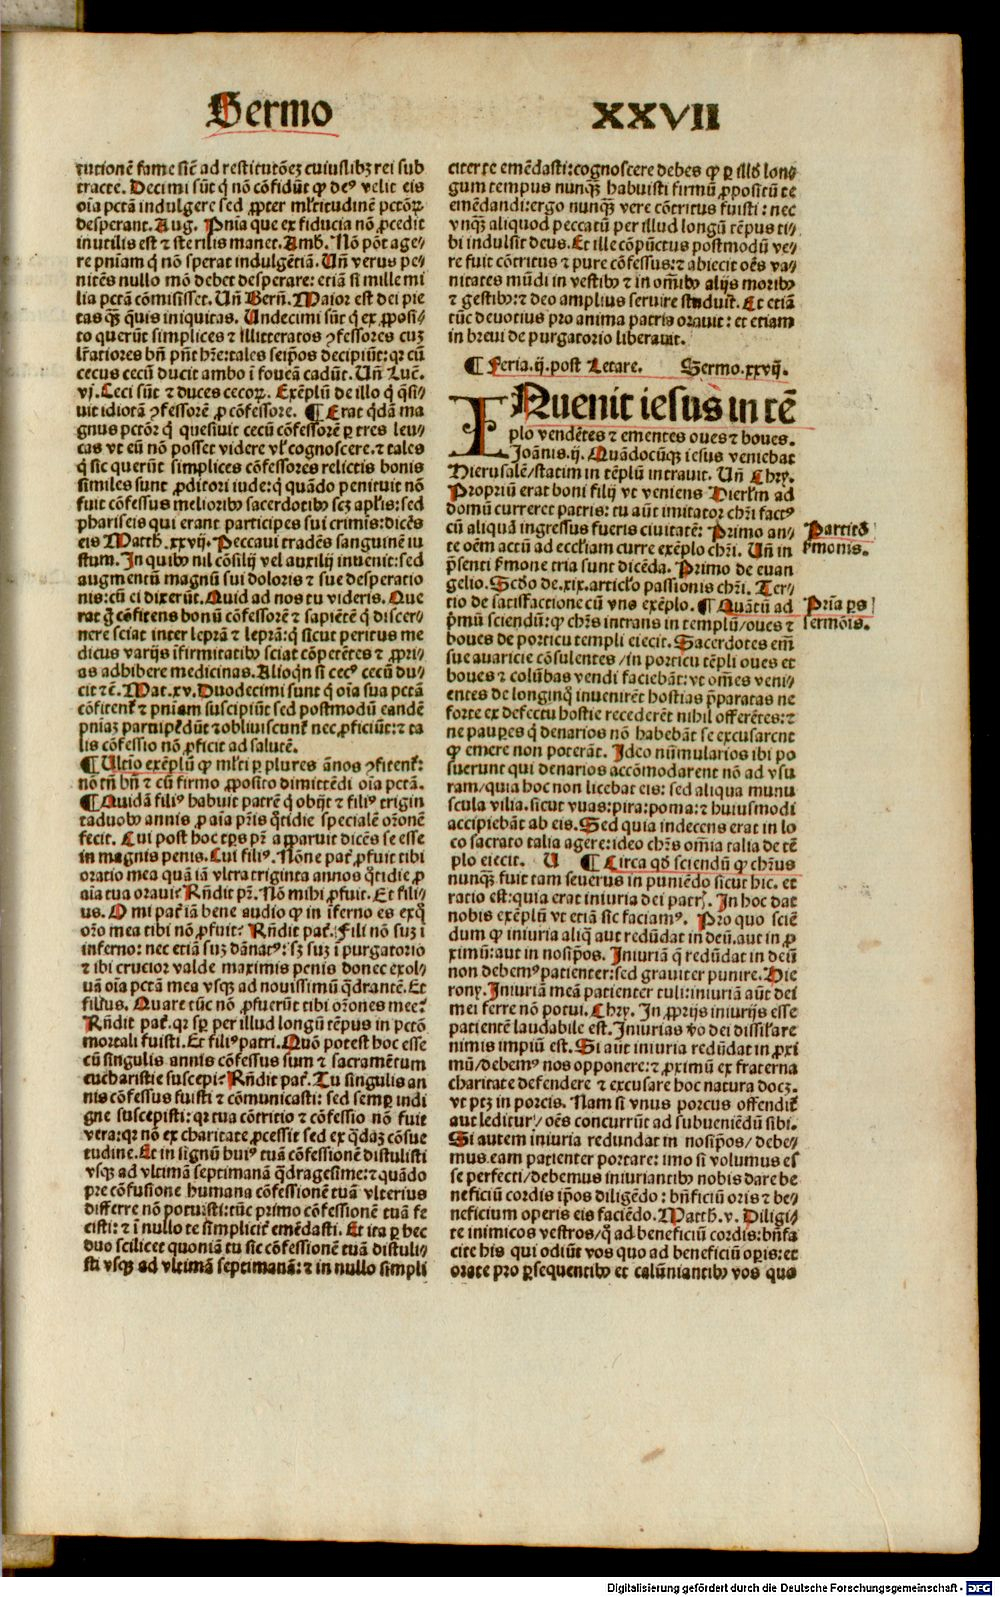 Sermo XXVII
tutionē fame sicut ad restitutōeꝫ cuiuslibꝫ rei sub
tracte. Decimi sūt q̇ nō cōfidūt ꝙ deꝰ velit eis
oīa pctā indulgere sed ꝓpter ml̓titudinē pctōꝝ
desperant. Aug. Pnīa que ex fiducia nō ꝓcedit
inutilis est ⁊ sterilis manet. Amb. Nō pōt age⸗
re pniam q̇ nō sperat indulgētiā. Uñ verus pe⸗
nitēs nullo mō debet desperare: etiā si mille mi
lia pctā cōmisisset. Uñ Berñ. Maior est dei pie
tas q̄ꝫ q̄uis iniquitas. Undecimi sūt q̇ ex ꝓposi⸗
to querūt simplices ⁊ illitteratos ꝯfessores cuꝫ
lr̄atiores bn̄ pn̄t hr̄e: tales seip̄os decipiūt: qꝛ cū
cecus cecū ducit ambo ī foueā cadūt. Uñ Luē.
vj. Ceci sūt ⁊ duces cecoꝝ. Exēplū de illo q̇ q̄si⸗
uit idiotā ꝯfessorē ꝓ cōfessore. ¶ Erat q̇dā ma
gnus pctōr q̇ quesiuit cecū cōfessorē ꝑ tres leu⸗
cas vt eū nō posset videre vl̓ cognoscere. ⁊ tales
q̇ sic querūt simplices cōfessores relictis bonis
similes sunt ꝓditori iude: q̇ quādo penituit nō
fuit cōfessus melioribꝰ sacerdotibꝰ scꝫ apl̓is: sed
phariseis qui erant participes sui crimis: dicēs
eis Matth. xxvij. Peccaui tradēs sanguinē iu
stum. In quibꝰ nil cōsilij vel auxilij inuenit: sed
augmentū magnū sui doloris ⁊ sue desperatio
nis: cū ei dixerūt. Quid ad nos tu videris. Que
rat g̊ cōfitens bonū cōfessorē ⁊ sapiētē q̇ discer⸗
nere sciat inter leprā ⁊ leprā: q̇ sicut peritus me
dicus varijs ī̄firmitatibꝰ sciat cōpetētes ⁊ ꝓpri⸗
as adhibere medicinas. Alioqn̄ si cecꝰ cecū du⸗
cit ⁊ē. Mat. xv. Duodecimi sunt q̇ oīa sua pctā
cōfitent᷑ ⁊ pniam suscipiūt sed postmodū eandē
pniaꝫ paruipēdūt ⁊ obliuiscunt᷑ nec ꝑficiūt: ⁊ ta
lis cōfessio nō ꝓficit ad salutē.
¶ Ultīo exēplū ꝙ ml̓ti ꝑ plures annos ꝯfitent᷑:
nō tn̄ bn̄ ⁊ cū firmo ꝓposito dimittēdi oīa pctā.
¶ Quidā filiꝰ habuit patrē q̇ obijt ⁊ filiꝰ trigin
taduobꝰ annis ꝓ aīa pr̄is q̊tidie specialē or̄onē
fecit. Cui post hoc tp̄s pr̄i apparuit dicēs se esse
in magnis penis. Cui filiꝰ. Nōne pat᷑ ꝓfuit tibi
oratio mea quā iā vltra triginta annos q̊tidie ꝓ
aīa tua oraui? Rn̄dit pr̄. Nō mihi ꝓfuit. Et fili⸗
us. O mi pat᷑ iā bene audio ꝙ in īferno es exq̊
or̄o mea tibi nō ꝓfuit? Rn̄dit pat᷑. Fili nō suꝫ ī
inferno: nec etiā suꝫ dānatꝰ: sꝫ suꝫ ī purgatorio
⁊ ibi crucior valde maximis penis donec exol⸗
uā oīa pctā mea vsqꝫ ad nouissimū q̇drantē. Et
filius. Quare tūc nō ꝓfuerūt tibi or̄ones mee?
Rn̄dit pat᷑. qꝛ sꝑ per illud longū tēpus in pctō
mortali fuisti. Et filiꝰ patri. Quō potest hoc esse
cū singulis annis cōfessus sum ⁊ sacramētum
eucharistie suscepi? Rn̄dit pat᷑. Tu singulis an
nis cōfessus fuisti ⁊ cōmunicasti: sed semꝑ indi
gne suscepisti: qꝛ tua cōtritio ⁊ cōfessio nō fuit
vera: qꝛ nō ex charitate ꝓcessit sed ex q̇daꝫ cōsue
tudine. Et in signū huiꝰ tuā cōfessionē distulisti
vsqꝫ ad vltimā septimanā q̇dragesime: ⁊ quādo
pre cōfusione humana cōfessionē tuā vlterius
differre nō potuisti: tūc primo cōfessionē tuā fe
cisti: ⁊ ī nullo te simplicit᷑ emēdasti. Et ita ꝑ hec
duo scilicet quoniā tu sic cōfessionē tuā distuli⸗
sti vsqꝫ ad vltimā septimanā: ⁊ in nullo simpli
citer te emēdasti: cognoscere debes ꝙ ꝑ illud lon⸗
gum tempus nunq̄ꝫ habuisti firmū ꝓpositū te
emēdandi: ergo nunq̄ꝫ vere cōtritus fuisti: nec
vnq̄ꝫ aliquod peccatū per illud longū tēpus ti⸗
bi indulsit deus. Et ille cōpūctus postmodū ve⸗
re fuit cōtritus ⁊ pure cōfessus: ⁊ abiecit oēs va⸗
nitates mūdi in vestibꝰ ⁊ in oīmbꝰ alijs moribꝰ
⁊ gestibꝰ: ⁊ deo amplius seruire studuit. Et etiā
tūc deuotius pro anima patris orauit: et etiam
in breui de purgatorio liberauit.
¶ Feria. ij. post Letare. Sermo. xxvij.
INuenit iesus in tē
plo vendētes ⁊ ementes oues ⁊ boues.
Joānis. ij. Quādocūqꝫ iesus veniebat
Hierusalē/ statim in tēplū intrauit. Uñ Chry.
Propriū erat boni filij vt veniens Hierl̓m ad
domū curreret patris: tu aūt imitator chr̄i factꝰ
cū aliquā ingressus fueris ciuitatē: Primo an⸗
te oēm actū ad eccl̓iam curre exēplo chr̄i. Uñ in
p̄senti s̓mone tria sunt dicēda. Primo de euan
gelio. Scd̓o de. xix. articl̓o passionis chr̄i. Ter⸗
tio de satisfactione cū vno exēplo. ¶ Quātū ad
p̄mū sciendū: ꝙ chr̄s intrans in templū/ oues ⁊
boues de porticu templi eiecit. Sacerdotes em̄
sue auaricie cōsulentes/ in porticu tēpli oues et
boues ⁊ colūbas vendi faciebāt: vt om̄es veni⸗
entes de longinq̊ inuenirēt hostias p̄paratas ne
forte ex defectu hostie recederēt nihil offerētes: ⁊
ne pauꝑes q̇ denarios nō habebāt se excusarent
ꝙ emere non poterāt. Ideo nūmularios ibi po
suerunt qui denarios accōmodarent nō ad vsu
ram/ quia hoc non licebat eis: sed aliqua munu
scula vilia. sicut vuas: pira: poma: ⁊ huiusmodi
accipiebāt ab eis. Sed quia indecens erat in lo
co sacrato talia agere: ideo chr̄s om̄ia talia de tē
plo eiecit. U ¶ Circa qd̓ sciendū ꝙ chr̄us
nunq̄ꝫ fuit tam seuerus in puniēdo sicut hic. et
ratio est: quia erat iniuria dei patr̄. In hoc dat
nobis exēplū vt etiā sic faciamꝰ. Pro quo sciē
dum ꝙ iniuria aliq̄ aut redūdat in deū. aut in ꝓ
ximū: aut in nosip̄os. Iniuriā q̄ redūdat in deū
non debemꝰ patienter: sed grauiter punire. Hie
rony. Iniuriā meā patienter tuli: iniuriā aūt dei
mei ferre nō potui. Chry. In ꝓprijs iniurijs esse
patientē laudabile est. Iniurias v̊o dei dissil̓are
nimis impiū est. Si aūt iniuria redūdat in ꝓxi
mū/ debemꝰ nos opponere: ⁊ ꝓximū ex fraterna
charitate defendere ⁊ excusare hoc natura docꝫ.
vt ptꝫ in porcis. Nam si vnus porcus offendit᷑
aut leditur/ oēs concurrūt ad subueniēdū sibi.
Si autem iniuria redundat in nosip̄os/ debe⸗
mus. eam patienter portare: imo si volumus es
se perfecti/ debemus iniuriantibꝰ nobis dare be
neficiū cordis ip̄os diligēdo: bn̄ficiū oris ⁊ be⸗
neficium operis eis faciēdo. Matth. v. Diligi⸗
te inimicos vestros/ q̊ ad beneficiū cordis: bn̄fa
cite his qui odiūt vos quo ad beneficiū oꝑis: et
orate pro ꝑsequentibꝰ et calūniantibꝰ vos quo
Partitio
s̓monis.
Pria ps
sermōis.
Digitalisierung gefördert durch die Deutsche Forschungsgemeinschaft - DFG